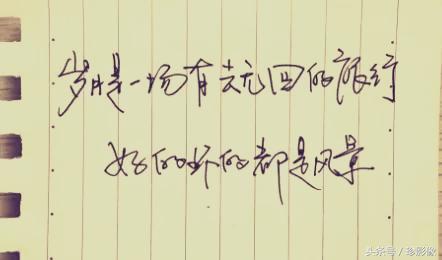 岁月是一场有去无回的旅行
好的坏的都是风景
头条号/珍影像